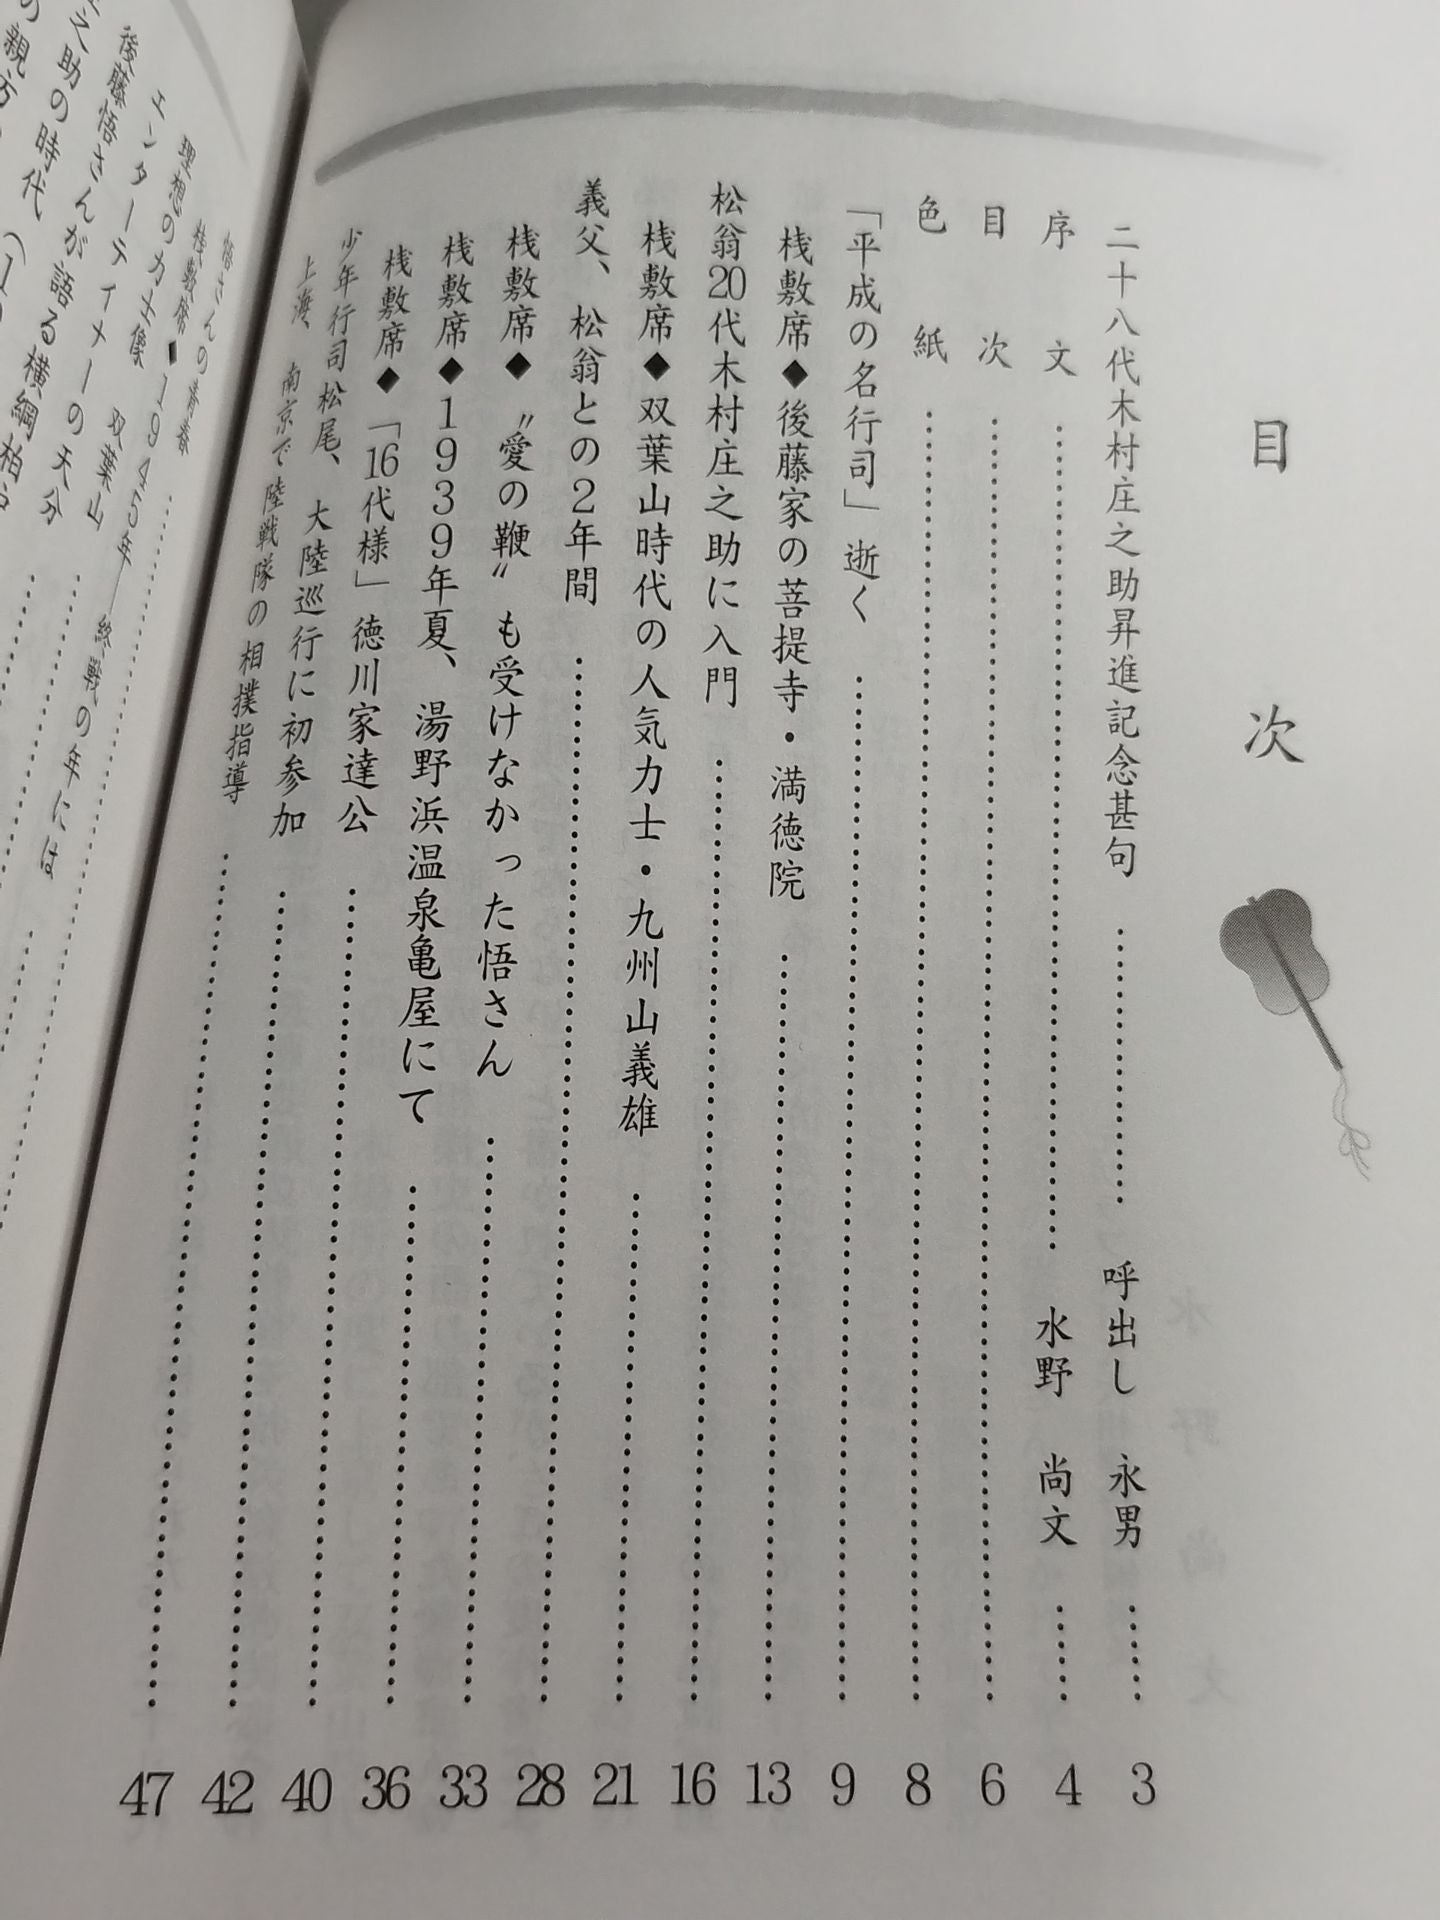 目次
二十八代木村庄之助昇進記念甚句 呼出し 永男 3
序文 水野 尚文 4
目次 6
色紙 8
「平成の名行司」逝く 9
桟敷席◆後藤家の菩提寺・満徳院 13
松翁20代木村庄之助に入門 16
桟敷席◆双葉山時代の人気力士・九州山義雄 21
義父、松翁との2年間 28
桟敷席◆〝愛の鞭〟も受けなかった悟さん 33
桟敷席◆1939年夏、湯野浜温泉亀屋にて 36
桟敷席◆「16代様」徳川家達公 40
少年行司松尾、大陸巡行に初参加 42
上海、南京で陸戦隊の相撲指導 47
悟さんの青春
桟敷席◆1945年―終戦の年には
理想の力士像 双葉山
エンターティナーの天分
後藤悟さんが語る横綱柏
之助の時代
の親方